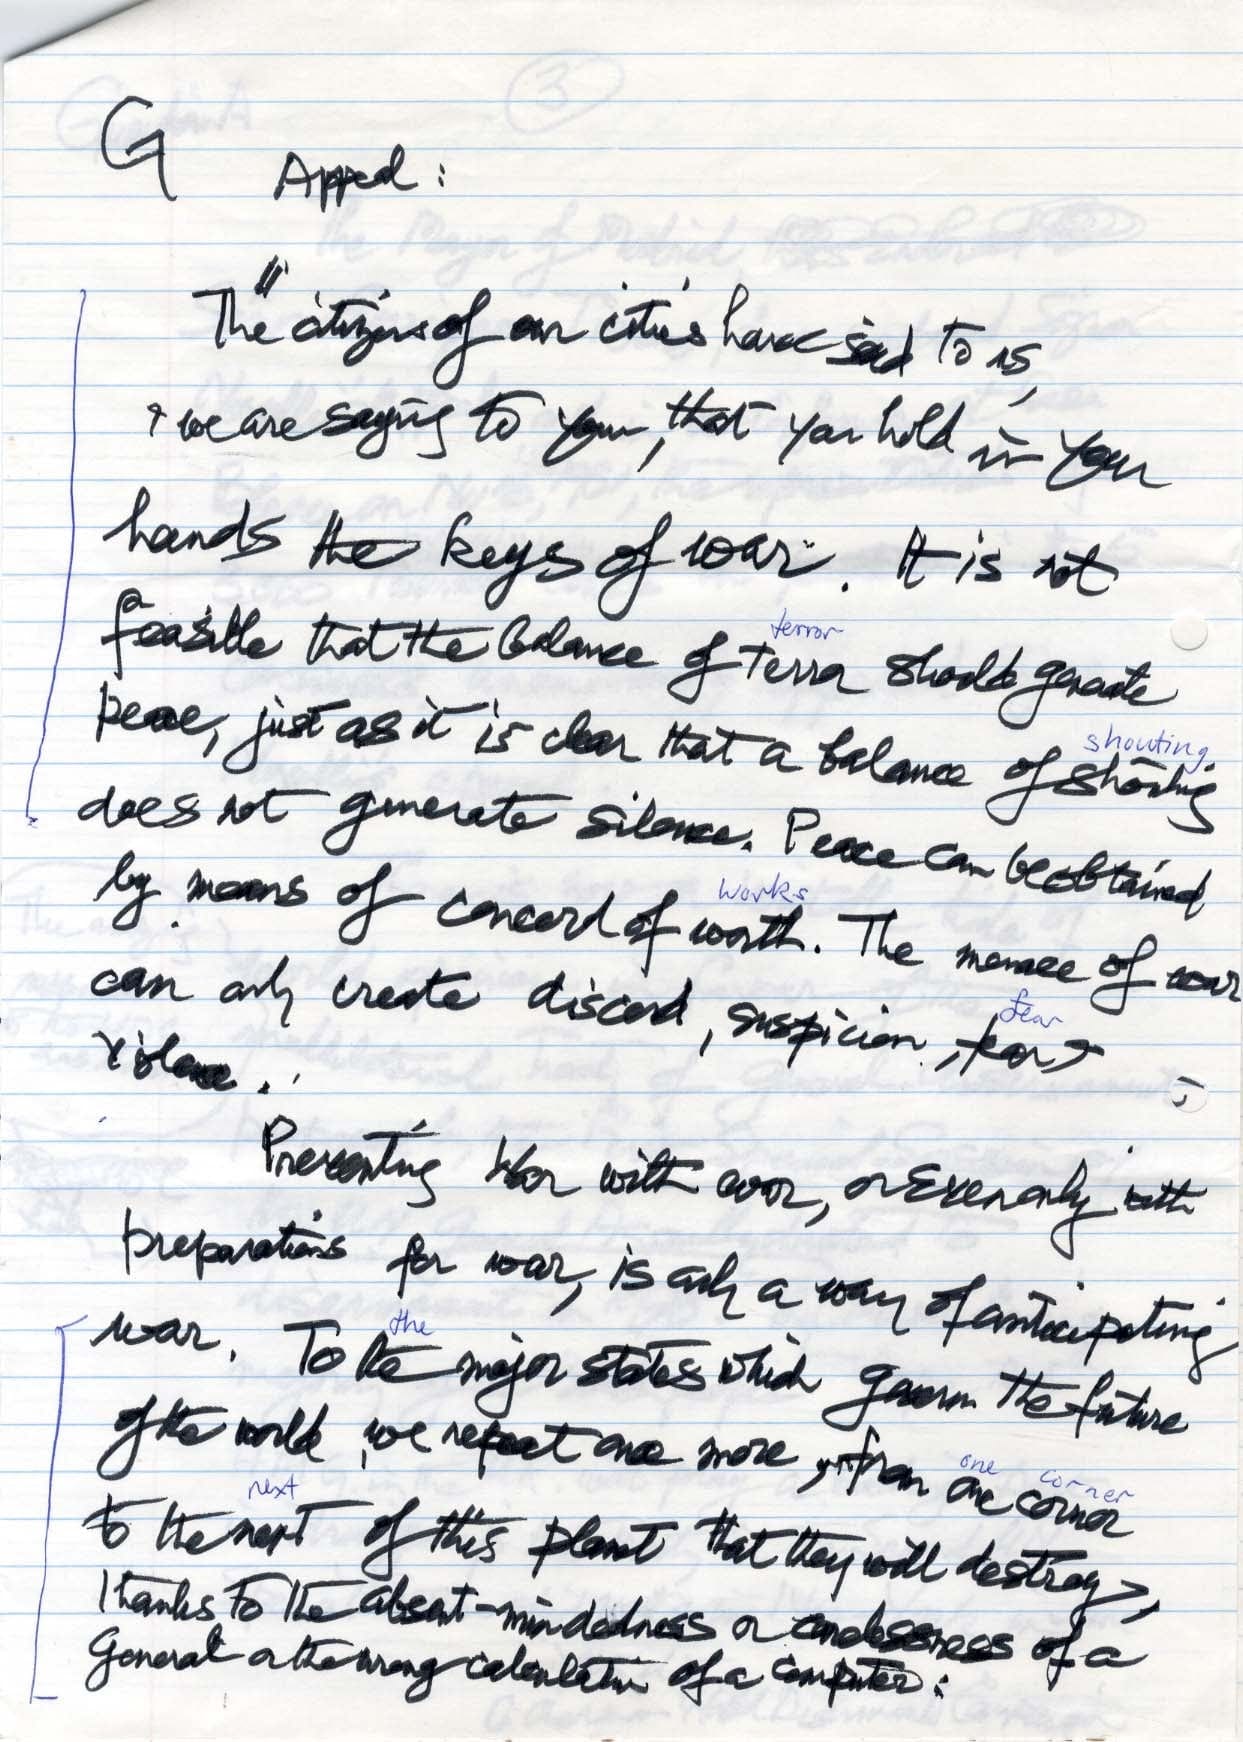 G
Appeal:
"The citizens of our cities have said to us,
+ we are saying to you, that you hold in your
hands the keys of war. It is not
terror
feasible that the balance of terror should generate
shouting
peace, just as it is clear that a balance of shouting
does not generate silence. Peace can be obtained
works
by means of concord of worth. The menace of war
fear
can only create discord, suspicion, fear +
violence.
Preventing war with war, or even only with
preparations for war, is only a way of anticipating
the
war. To the major states which govern the future
of the world, we repeat once more, from one corner
one corner
next
to the next of this planet that they will destroy,
thanks to the absent-mindedness or carelessness of a
General or the wrong calculation of a computer: